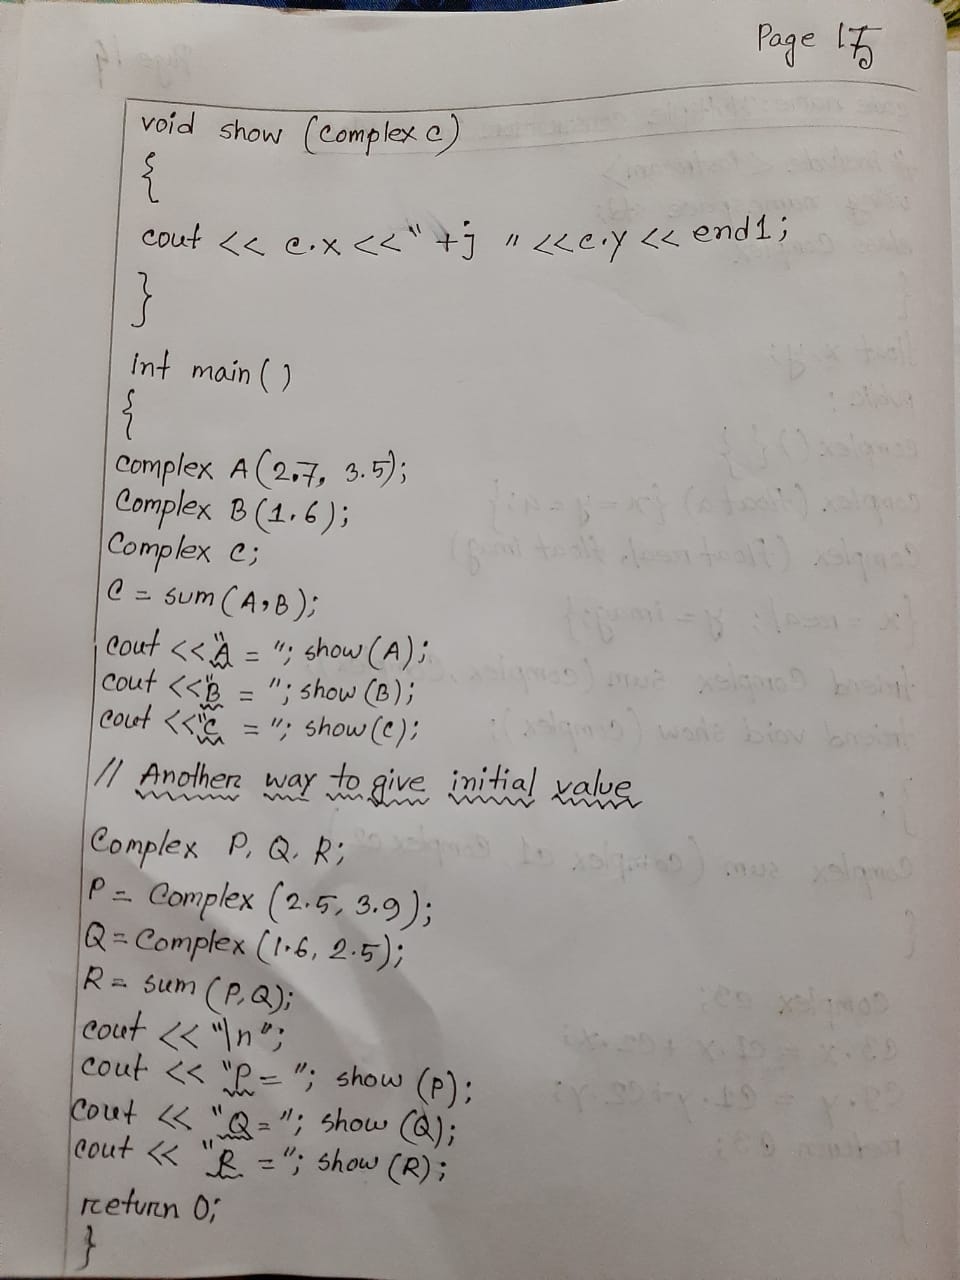 Page 15
void show (Complex c)
{
cout << c.x <<" +j " <<c.y << endl;
}
int main()
{
Complex A(2.7, 3.5);
Complex B(1.6);
Complex C;
C = sum(A,B);
cout <<"A = "; show(A);
cout <<"B = "; show(B);
cout <<"C = "; show(C);
// Another way to give initial value
Complex P, Q, R;
P = Complex (2.5, 3.9);
Q = Complex (1.6, 2.5);
R = sum (P,Q);
cout << "\n";
cout << "P = "; show (P);
cout << "Q = "; show (Q);
cout << "R = "; show (R);
return 0;
}